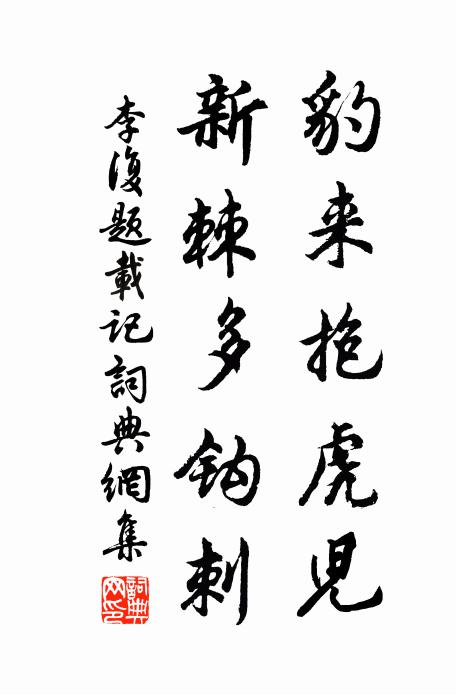 豹来抱虎児
新棘多钩刺
李復题載记詞典網集
詞典网印